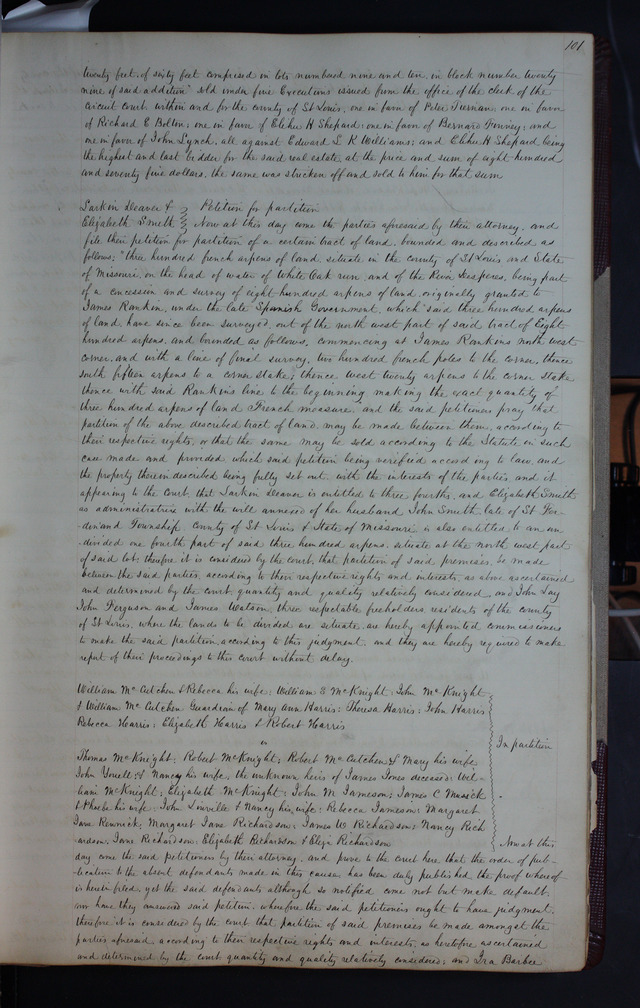 101
twenty feet, of sixty feet comprised in lots numbered nine and ten, in block number twenty
nine of said addition" sold under five Executions issued from the office of the clerk of the
circuit court within and for the county of St Louis, one in favor of Peter Tiernan; one in favor
of Richard E Bolton; one in favor of Elihu H Shepard; one in favor of Bernard Forrney; and
one in favor of John Lynch, all against Edward L R Williams; and Elihu H Shepard being
the highest and last bidder for the said real estate, at the price and sum of eight hundred
and seventy five dollars, the same was stricken off and sold to him for that sum
Larkin Deaver & } Petition for partition
Elizabeth Smith } Now at this day come the parties aforesaid by their attorney, and
file their petition for partition of a certain tract of land, bounded and described as
follows; "three hundred french arpens of land, situate in the county of St Louis and State
of Missouri, on the head of water of White Oak run, and of the River Desperes, being part
of a concession and survey of eight hundred arpens of land, originally granted to
James Rankin, under the late Spanish Government, which said three hundred arpens
of land, have since been surveyed out of the north west part of said tract of Eight
hundred arpens, and bounded as follows, commencing at James Rankins north west
corner, and with a line of final survey, two hundred french poles to the corner, thence
south fifteen arpens to a corner stake; thence west twenty arpens to the corner stake
thence with said Rankin's line to the beginning making the exact quantity of
three hundred arpens of land French measure, and the said petitioners pray that
partition of the above described tract of land may be made between them, according to
their respective rights, or that the same may be sold according to the Statute in such
case made and provided which said petition being verified according to law, and
the property therein described being fully set out with the interests of the parties and it
appearing to the court, that Larkin Deaver is entitled to three fourths, and Elizabeth Smith
as administratrix with the will annexed of her husband John Smith late of St Fer-
dinand Township County of St Louis & State of Missouri is also entitled to an un
-divided one fourth part of said three hundred arpens, situate at the north west part
of said lot; therefore it is considered by the court, that partition of said premises, be made
between the said parties, according to their respective rights and interests, as above ascertained
and determined by the court, quantity and quality relatively considered, and John Lay
John Ferguson and James Watson, three respectable freeholders, residents of the county
of St Louis, where the lands to be divided are situate, are hereby appointed commissioners
to make the said partition according to this judgment and they are hereby required to make
report of their proceedings to this court without delay.
William Mc Cutchen & Rebecca his wife; William S McKnight; John McKnight
& William Mc Cutchen Guardian of Mary Ann Harris; Theresa Harris; John Harris
Rebecca Harris; Elizabeth Harris & Robert Harris
In partition
Thomas McKnight; Robert McKnight; Robert McCutchen & Mary his wife
John Yowell & Nancy his wife, the unknown heirs of James Jones deceased; Wil-
liam McKnight; Elizabeth McKnight; John M Jameson; James C Musick
& Phoebe his wife; John & Nancy his wife; Rebecca Jameson; Margaret
Jane; Margaret Jane Richardson; James W Richardson; Nancy Rich
ardson; Jane Richardson; Elizabeth Richardson & Eliza Richardson Now at this
day come the said petitioners by their attorney, and prove to the court here that the order of pub-
lication to the absent defendants made in this cause has been duly published, the proof whereof
is herein filed, yet the said defendants although so notified come not but make default,
nor have they answered said petition; wherefore the said petitioners ought to have judgment,
therefore it is considered by the court that partition of said premises be made amongst the
parties aforesaid according to their respective rights and interests, as heretofore ascertained
and determined by the court quantity and quality relatively considered; and Ira Barbee